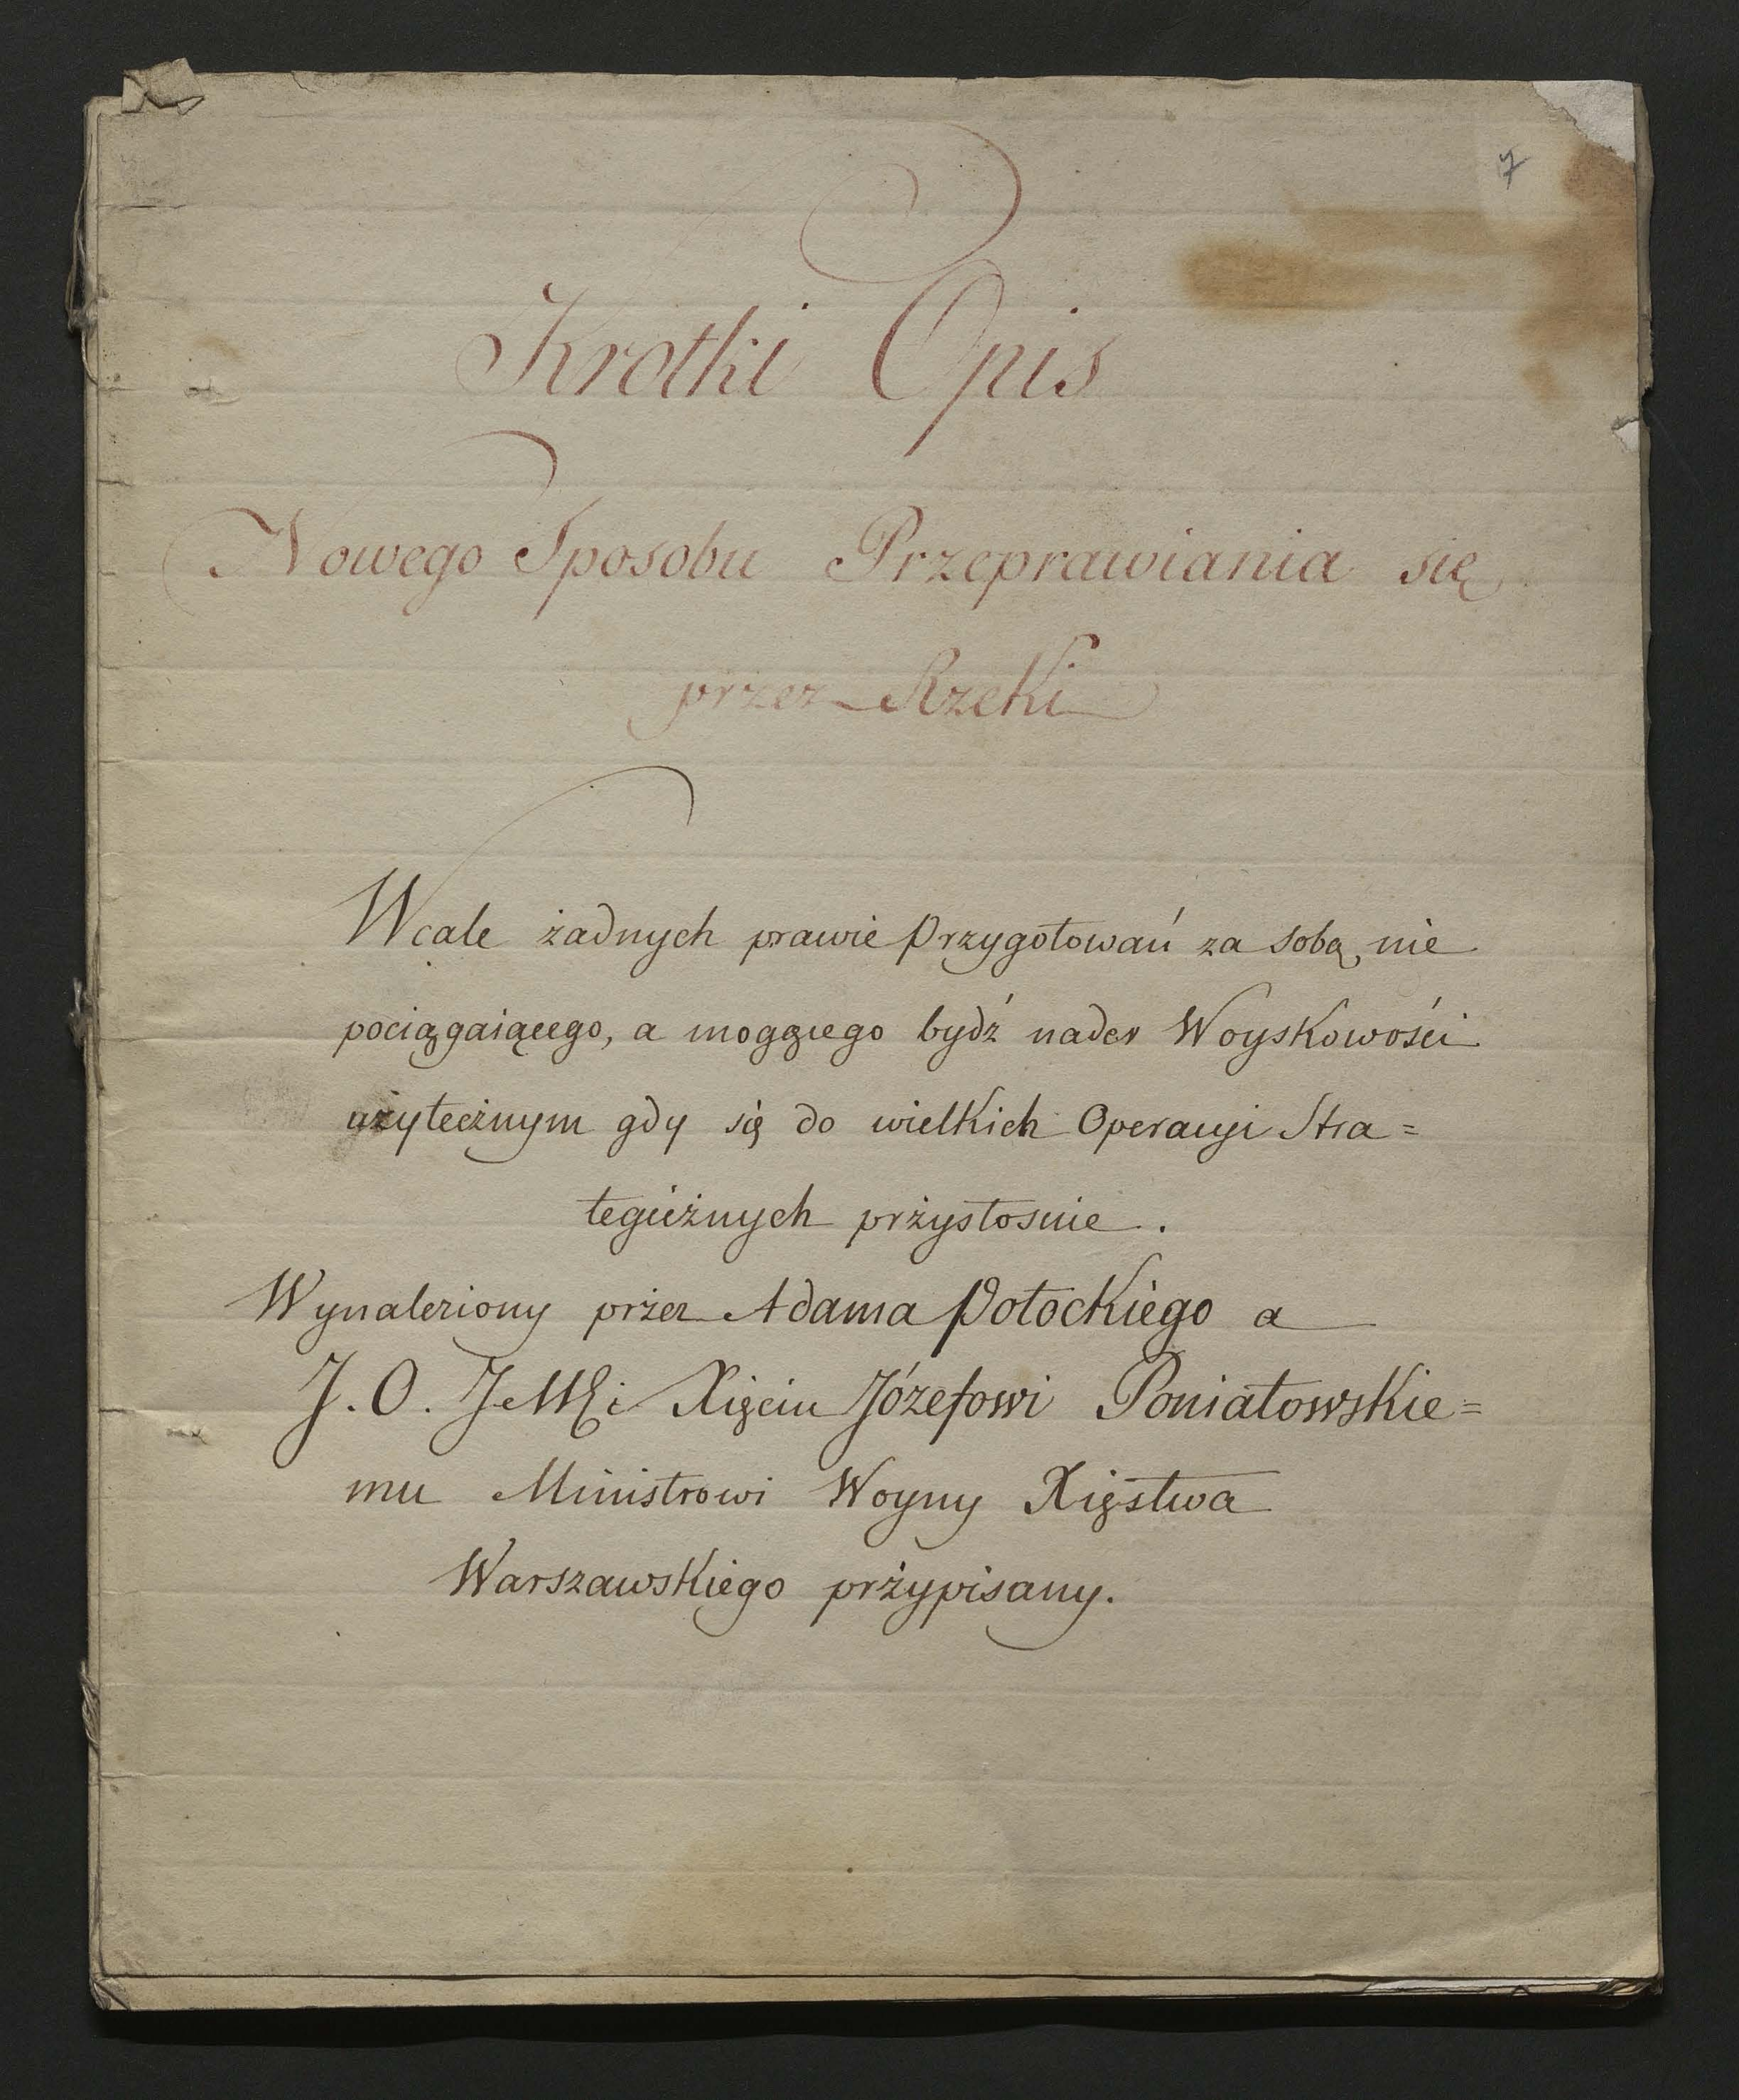 7
Krotki Opis
Nowego Sposobu Przeprawiania się
przez Rzeki
Wcale żadnych prawie Przygotowań za sobą nie
pociągaiącego, a mogącego bydź nader Woyskowości
użytecżnym gdy się do wielkich Operacyi Stra=
tegicżnych przystosuie.
Wynaleziony przez Adama Potockiego a
J. O. JeMći Xięciu Józefowi Poniatowskie=
mu Ministrowi Woyny Xięstwa
Warszawskiego przypisany.